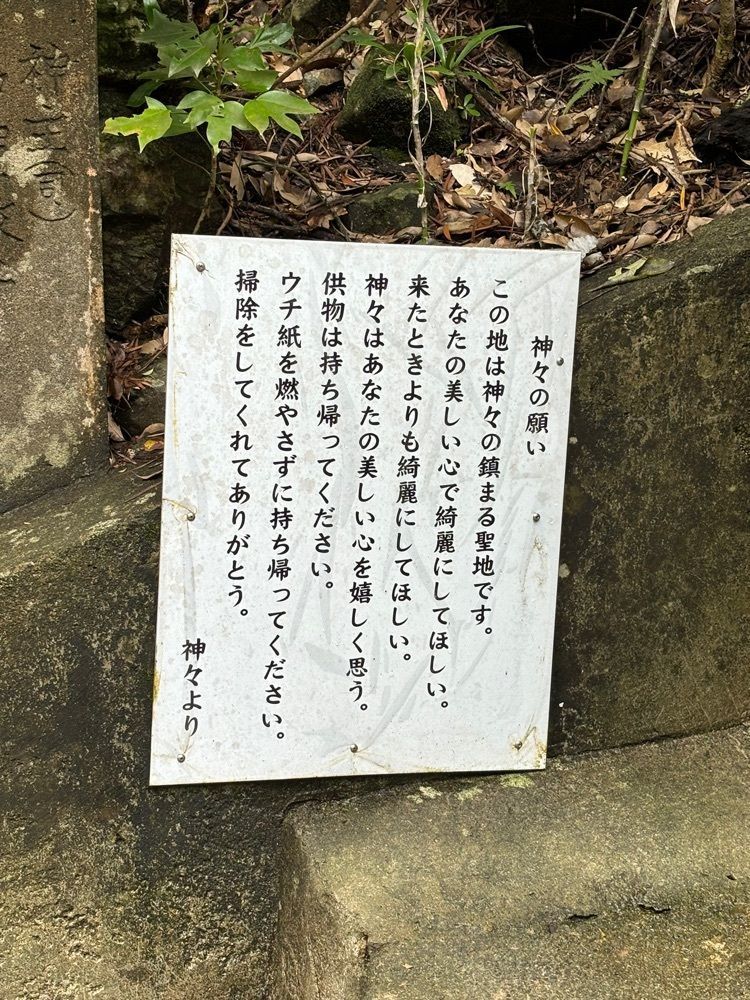 神々の願い
この地は神々の鎮まる聖地です。
あなたの美しい心で綺麗にしてほしい。
来たときよりも綺麗にしてほしい。
神々はあなたの美しい心を嬉しく思う。
供物は持ち帰ってください。
ウチ紙を燃やさずに持ち帰ってください。
掃除をしてくれてありがとう。
神々より